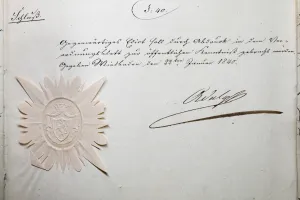 Schluß
§. 40
Gegenwärtiges Edict soll durch Abdruck in dem Ver-
ordnungsblatt zur öffentlichen Kenntniß gebracht werden
Gegeben Wiesbaden den 22ten Januar 1840.
Adolph